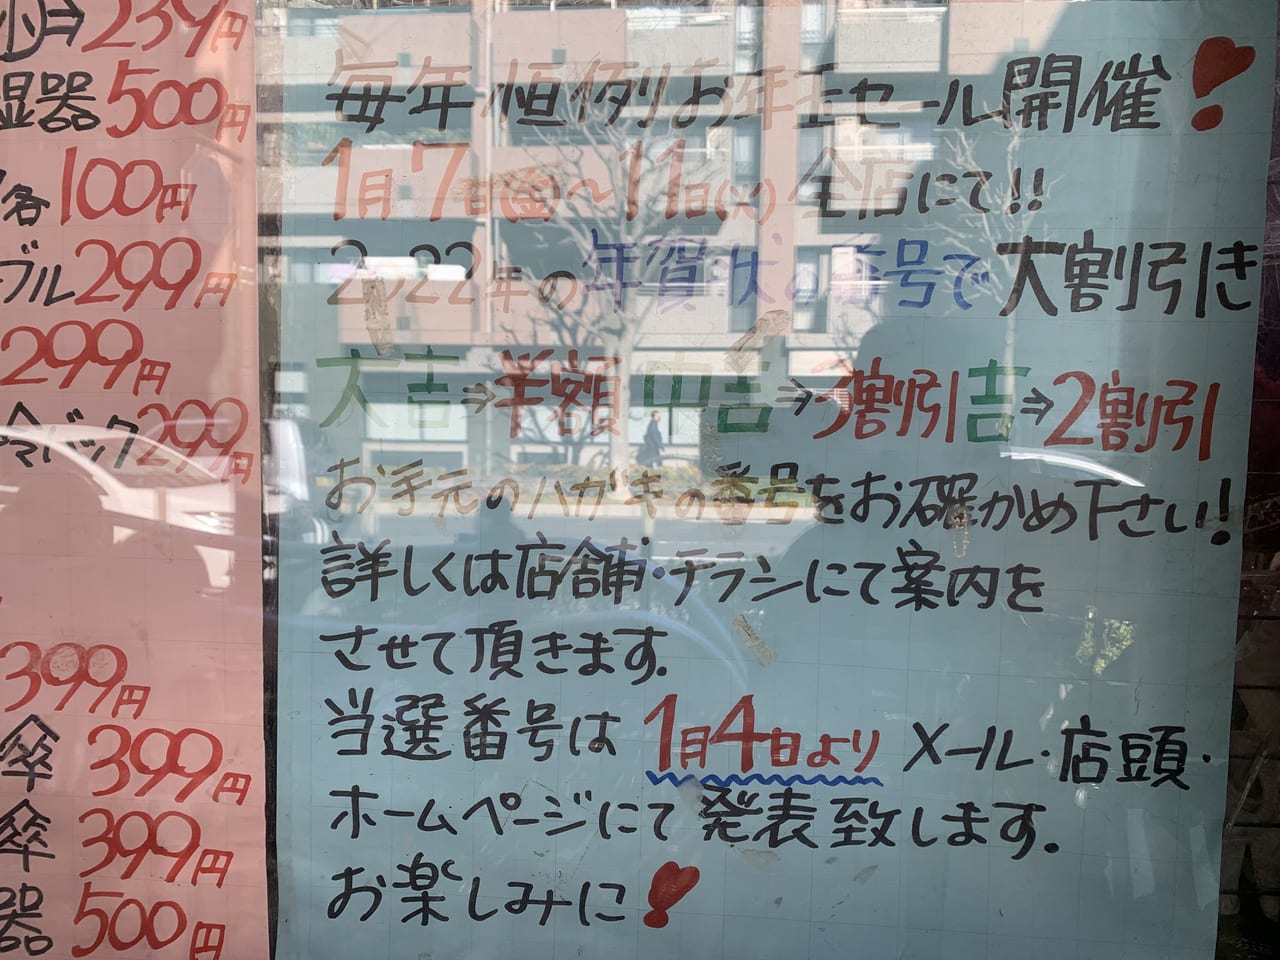 239円
湿器 500円
各 100円
ブル 299円
299円
バック 299円
399円
傘 399円
傘 399円
器 500円
毎年恒例お年玉セール開催!
1月7日(金)〜11日(火)全店にて!!
2022年の年賀状の番号で大割引き
大吉⇒半額 中吉⇒3割引 吉⇒2割引
お手元のハガキの番号をお確かめ下さい!
詳しくは店舗・チラシにて案内を
させて頂きます.
当選番号は 1月4日より メール・店頭・
ホームページにて発表致します.
お楽しみに!